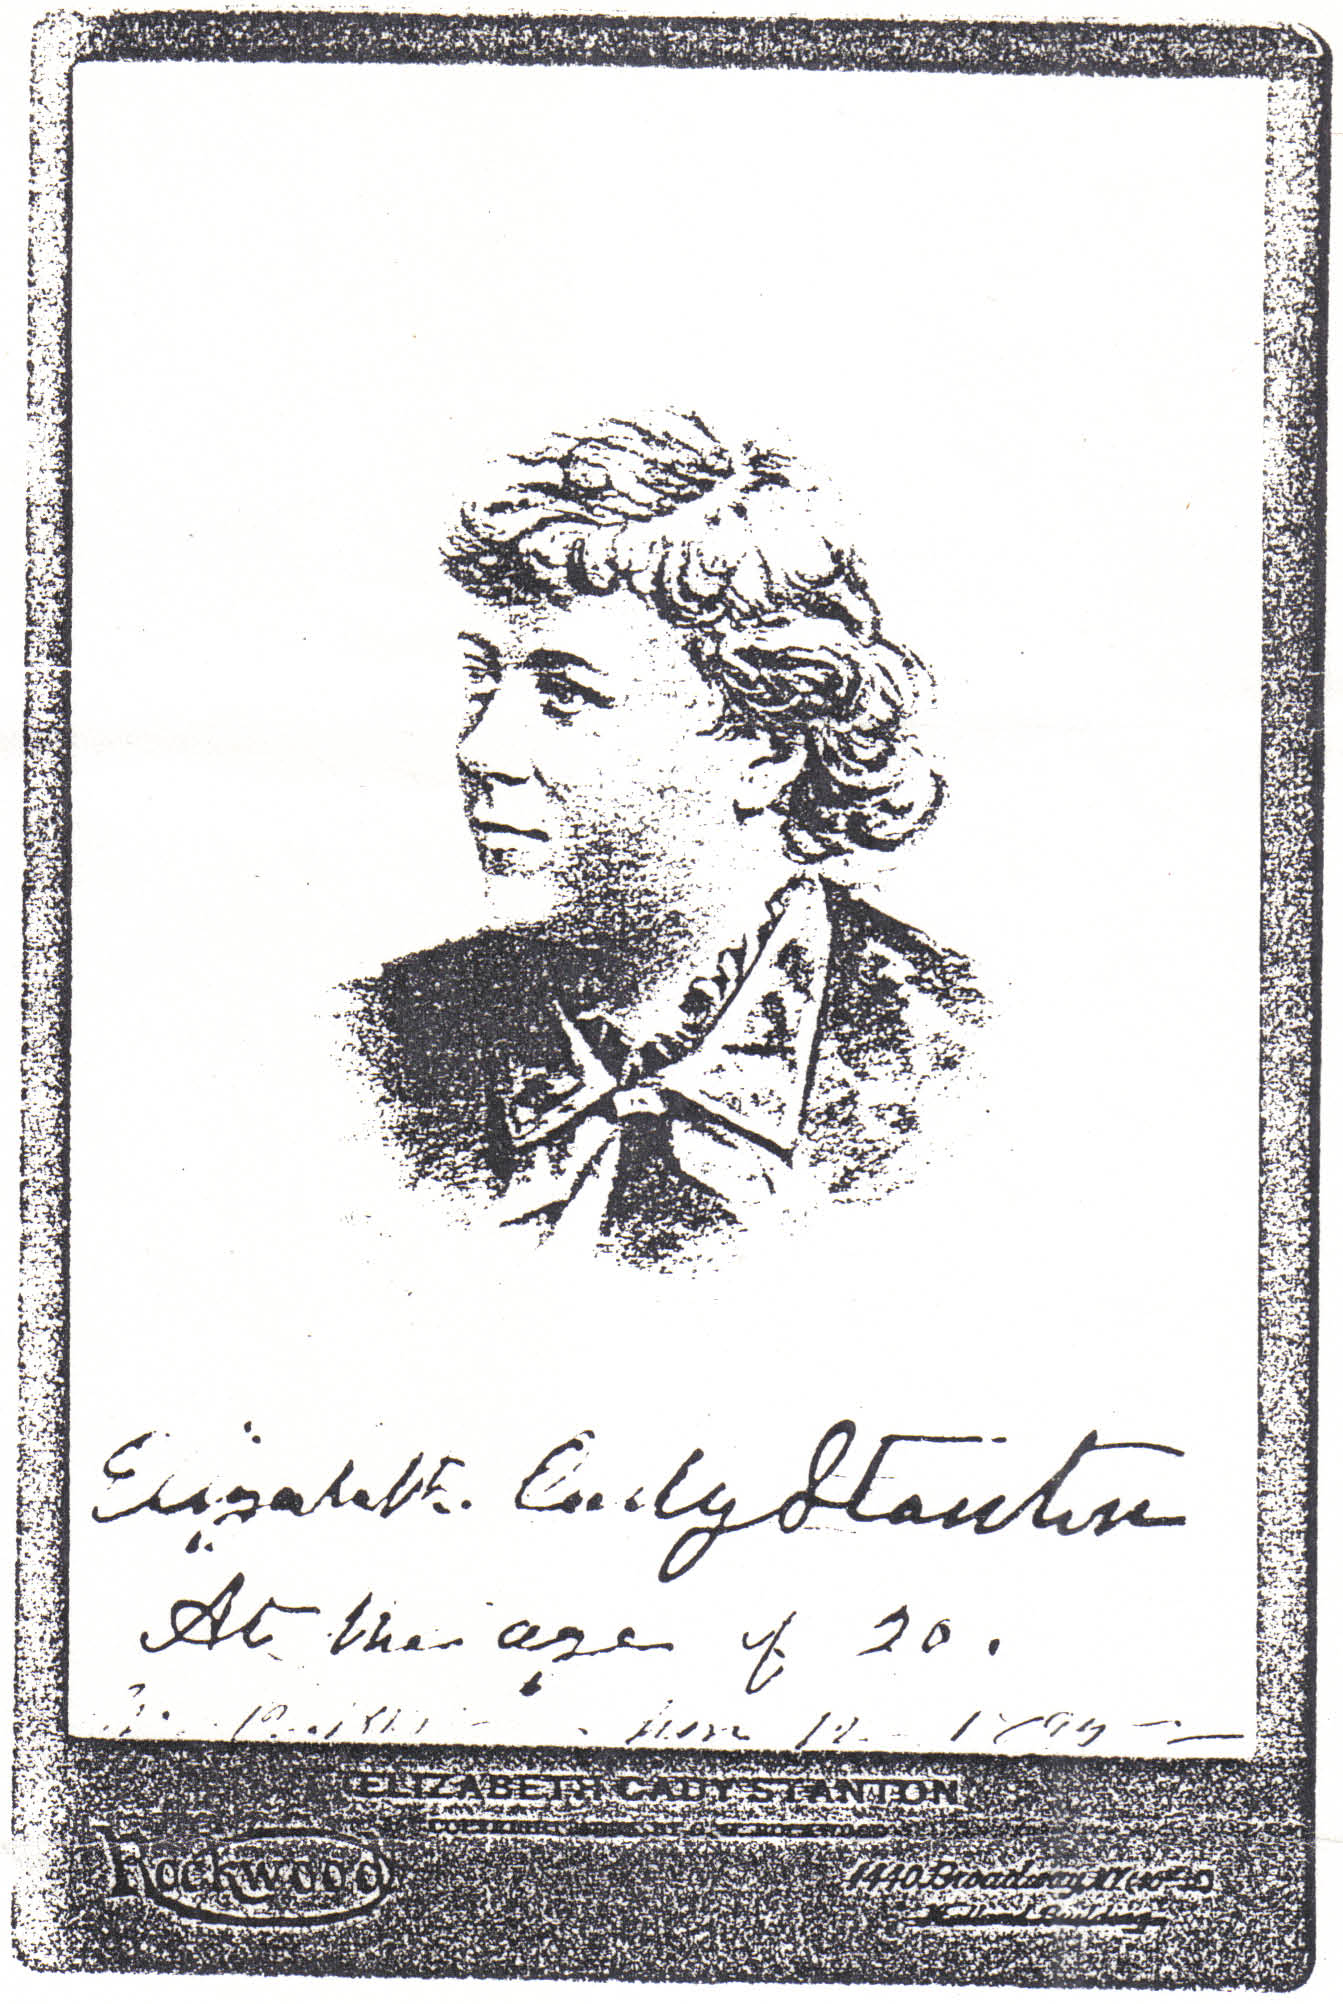 Elizabeth Cady Stanton
At the age of 20.
Nov 12 1895
ELIZABETH CADY STANTON
Rockwood
1440 Broadway